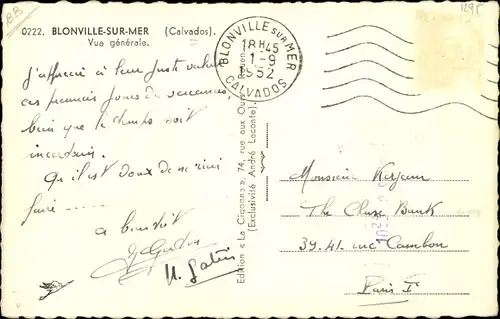 0222. BLONVILLE-SUR-MER (Calvados).
Vue générale.
BLONVILLE SUR MER
18H45
1-9
1952
CALVADOS
J'apprécie à leur juste valeur
ces premiers jours de vacances,
bien que le temps soit
incertain.
Qu'il est doux de ne rien
faire ------
à bientôt
Edition « La Cigogne », 74, rue aux Ours, Rouen
(Exclusivité André Lecontel).
Monsieur
The Chase Bank
39.41. rue Cambon
Paris 1er